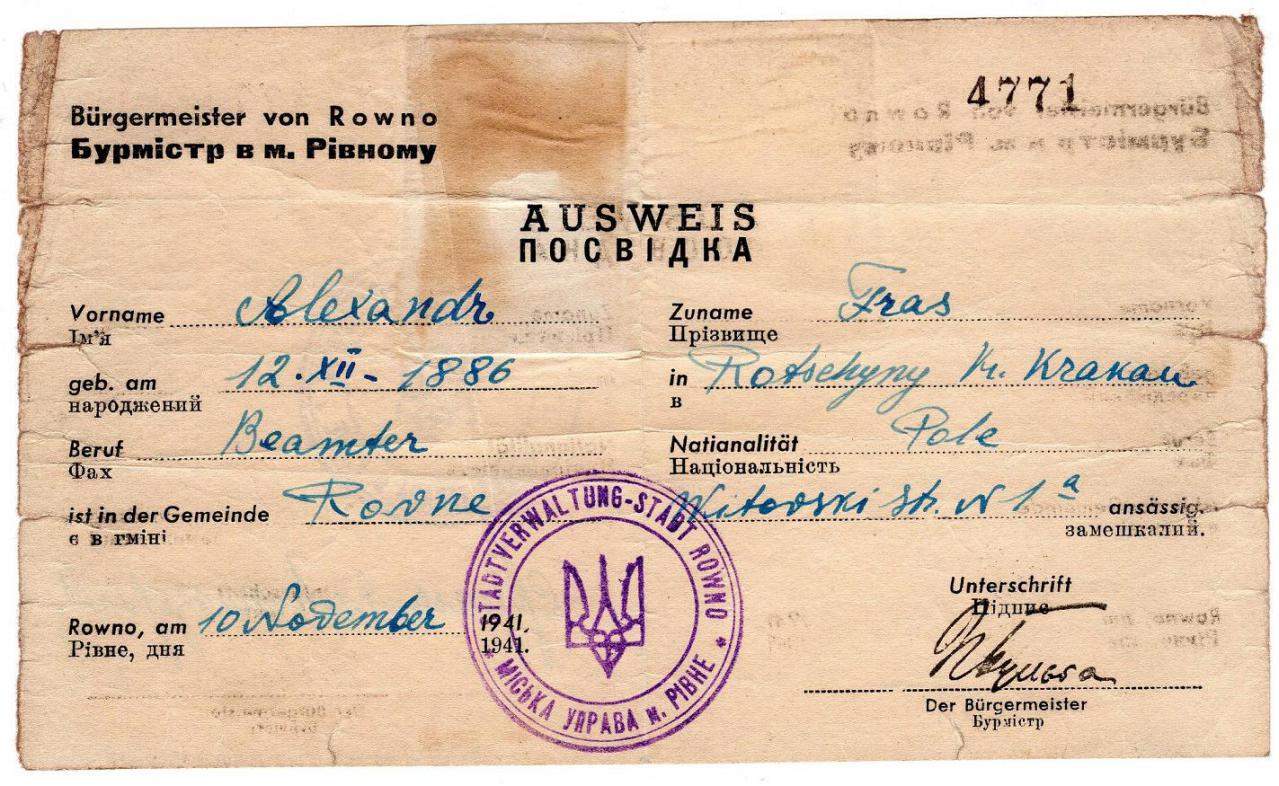 4771
Bürgermeister von Rowno
Бурмістр в м. Рівному
AUSWEIS
ПОСВІДКА
Vorname Alexandr Zuname Fras
Ім'я Прізвище
geb. am 12.XII- 1886 in Rotschyny Kr. Krakau
народжений в
Beruf Beamter Natianalität Pole
Фах Національність
ist in der Gemeinde Rovne Witovski str. N 1a ansässig.
є в гміні замешкалий.
Unterschrift
Підпис
Rowno, am 10 November 1941.
Рівне, дня 1941.
STADTVERWALTUNG-STADT ROWNO
МІСЬКА УПРАВА м. РІВНЕ
Der Bürgermeister
Бурмістр